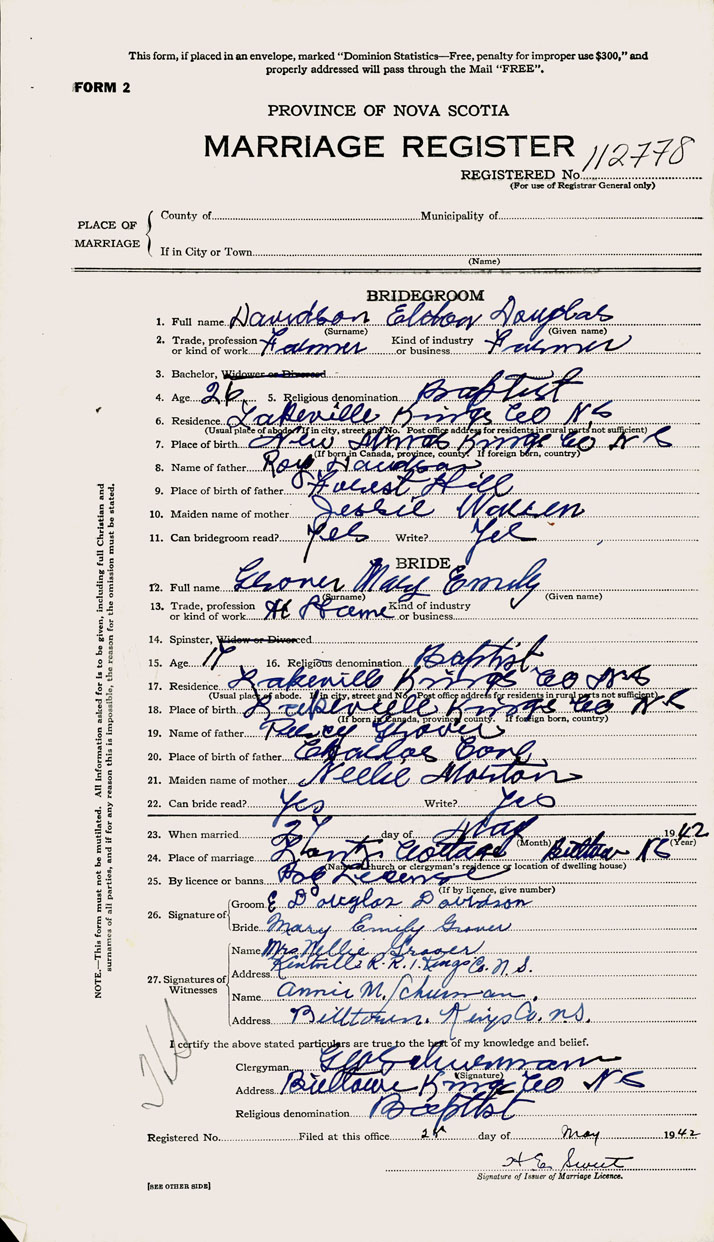 This form, if placed in an envelope, marked "Dominion Statistics—Free, penalty for improper use $300," and
properly addressed will pass through the Mail "FREE".
FORM 2
PROVINCE OF NOVA SCOTIA
MARRIAGE REGISTER
REGISTERED No. 112778
(For use of Registrar General only)
PLACE OF MARRIAGE
County of Municipality of
If in City or Town
(Name)
BRIDEGROOM
1. Full name Davidson Eldon Douglas
(Surname) (Given name)
2. Trade, profession or kind of work Farmer Kind of industry or business Farmer
3. Bachelor, Widower or Divorced
4. Age 26 5. Religious denomination Baptist
6. Residence Lakeville Kings Co N.S
(Usual place of abode. If in city, street and No. Post office address for residents in rural parts not sufficient)
7. Place of birth New Kings Co N S
(If born in Canada, province, county. If foreign born, country)
8. Name of father Roy Davidson
9. Place of birth of father Forest Hill
10. Maiden name of mother Jessie
11. Can bridegroom read? Yes Write? Yes
BRIDE
12. Full name Grover Mary Emily
(Surname) (Given name)
13. Trade, profession or kind of work At Home Kind of industry or business
14. Spinster, Widow or Divorced
15. Age 16. Religious denomination Baptist
17. Residence Lakeville Kings Co N S
(Usual place of abode. If in city, street and No. Post office address for residents in rural parts not sufficient)
18. Place of birth Lakeville Kings Co N S
(If born in Canada, province, county. If foreign born, country)
19. Name of father Grover
20. Place of birth of father
21. Maiden name of mother Nellie Morton
22. Can bride read? Yes Write? Yes
23. When married 27 day of May 1942
(Month) (Year)
24. Place of marriage Cottage Billtown N S
(Name of church or clergyman's residence or location of dwelling house)
25. By licence or banns By Licence
(If by licence, give number)
26. Signature of
Groom E Douglas Davidson
Bride Mary Emily Grover
27. Signatures of Witnesses
Name Mrs. Nellie Grover
Address Kentville R.R. 1. Kings Co. N.S.
Name Annie M. Schurman.
Address Billtown. Kings Co. N.S.
I certify the above stated particulars are true to the best of my knowledge and belief.
Clergyman Schurman
(Signature)
Address Billtown Kings Co N S
Religious denomination Baptist
Registered No. Filed at this office day of May 1942
H E Sweet
Signature of Issuer of Marriage Licence.
[SEE OTHER SIDE]
NOTE.—This form must not be mutilated. All information asked for is to be given, including full Christian and
surnames of all parties, and if for any reason this is impossible, the reason for the omission must be stated.